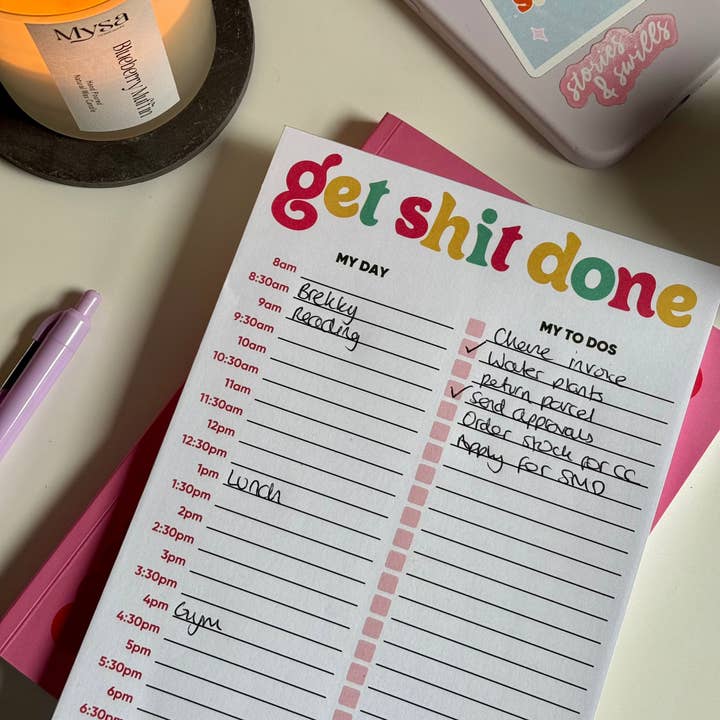 Mysa
Blueberry Muffin
Hand Poured
Natural Wax Candle
stories
& swills
get shit done
MY DAY
8am
8:30am Brekky
9am Recording
9:30am
10am
10:30am
11am
11:30am
12pm
12:30pm
1pm Lunch
1:30pm
2pm
2:30pm
3pm
3:30pm
4pm Gym
4:30pm
5pm
5:30pm
6pm
6:30pm
MY TO DOS
Chase invoice
Water plants
return parcel
Send approvals
Order stock for CC
Apply for SMD